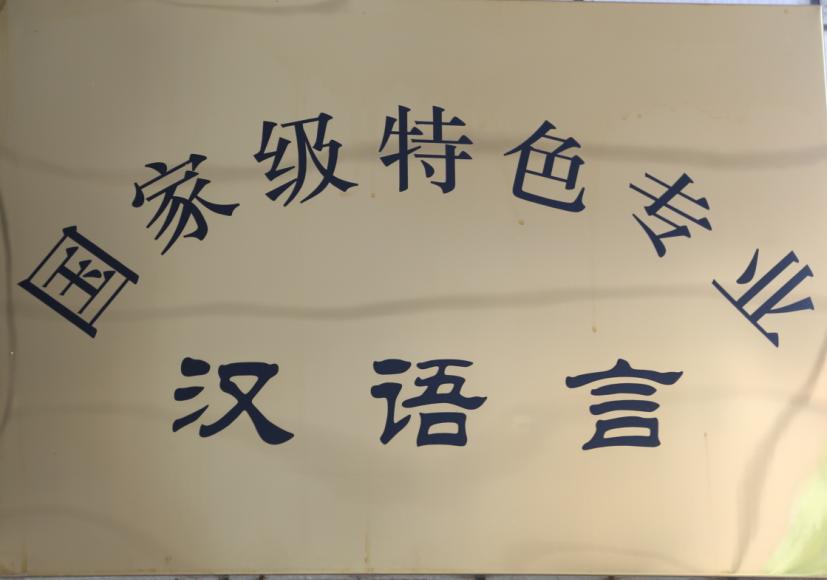 国家级特色专业
汉语言